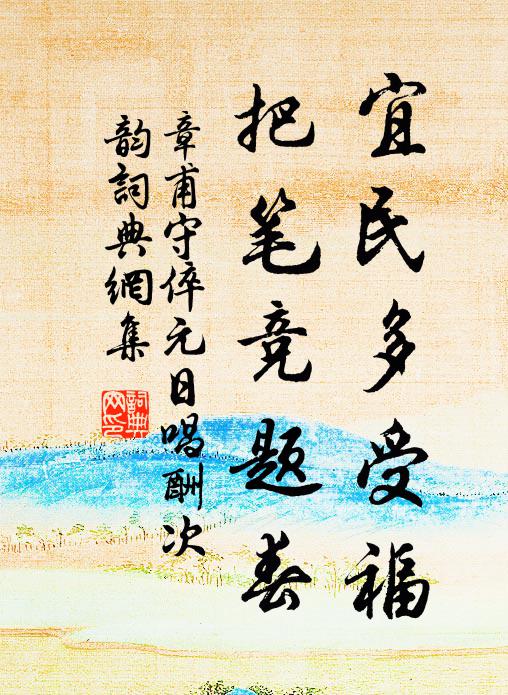 宜民多受福
把笔竞题春
章甫守倅元日唱酬次
韵詞典網集
詞典
网印